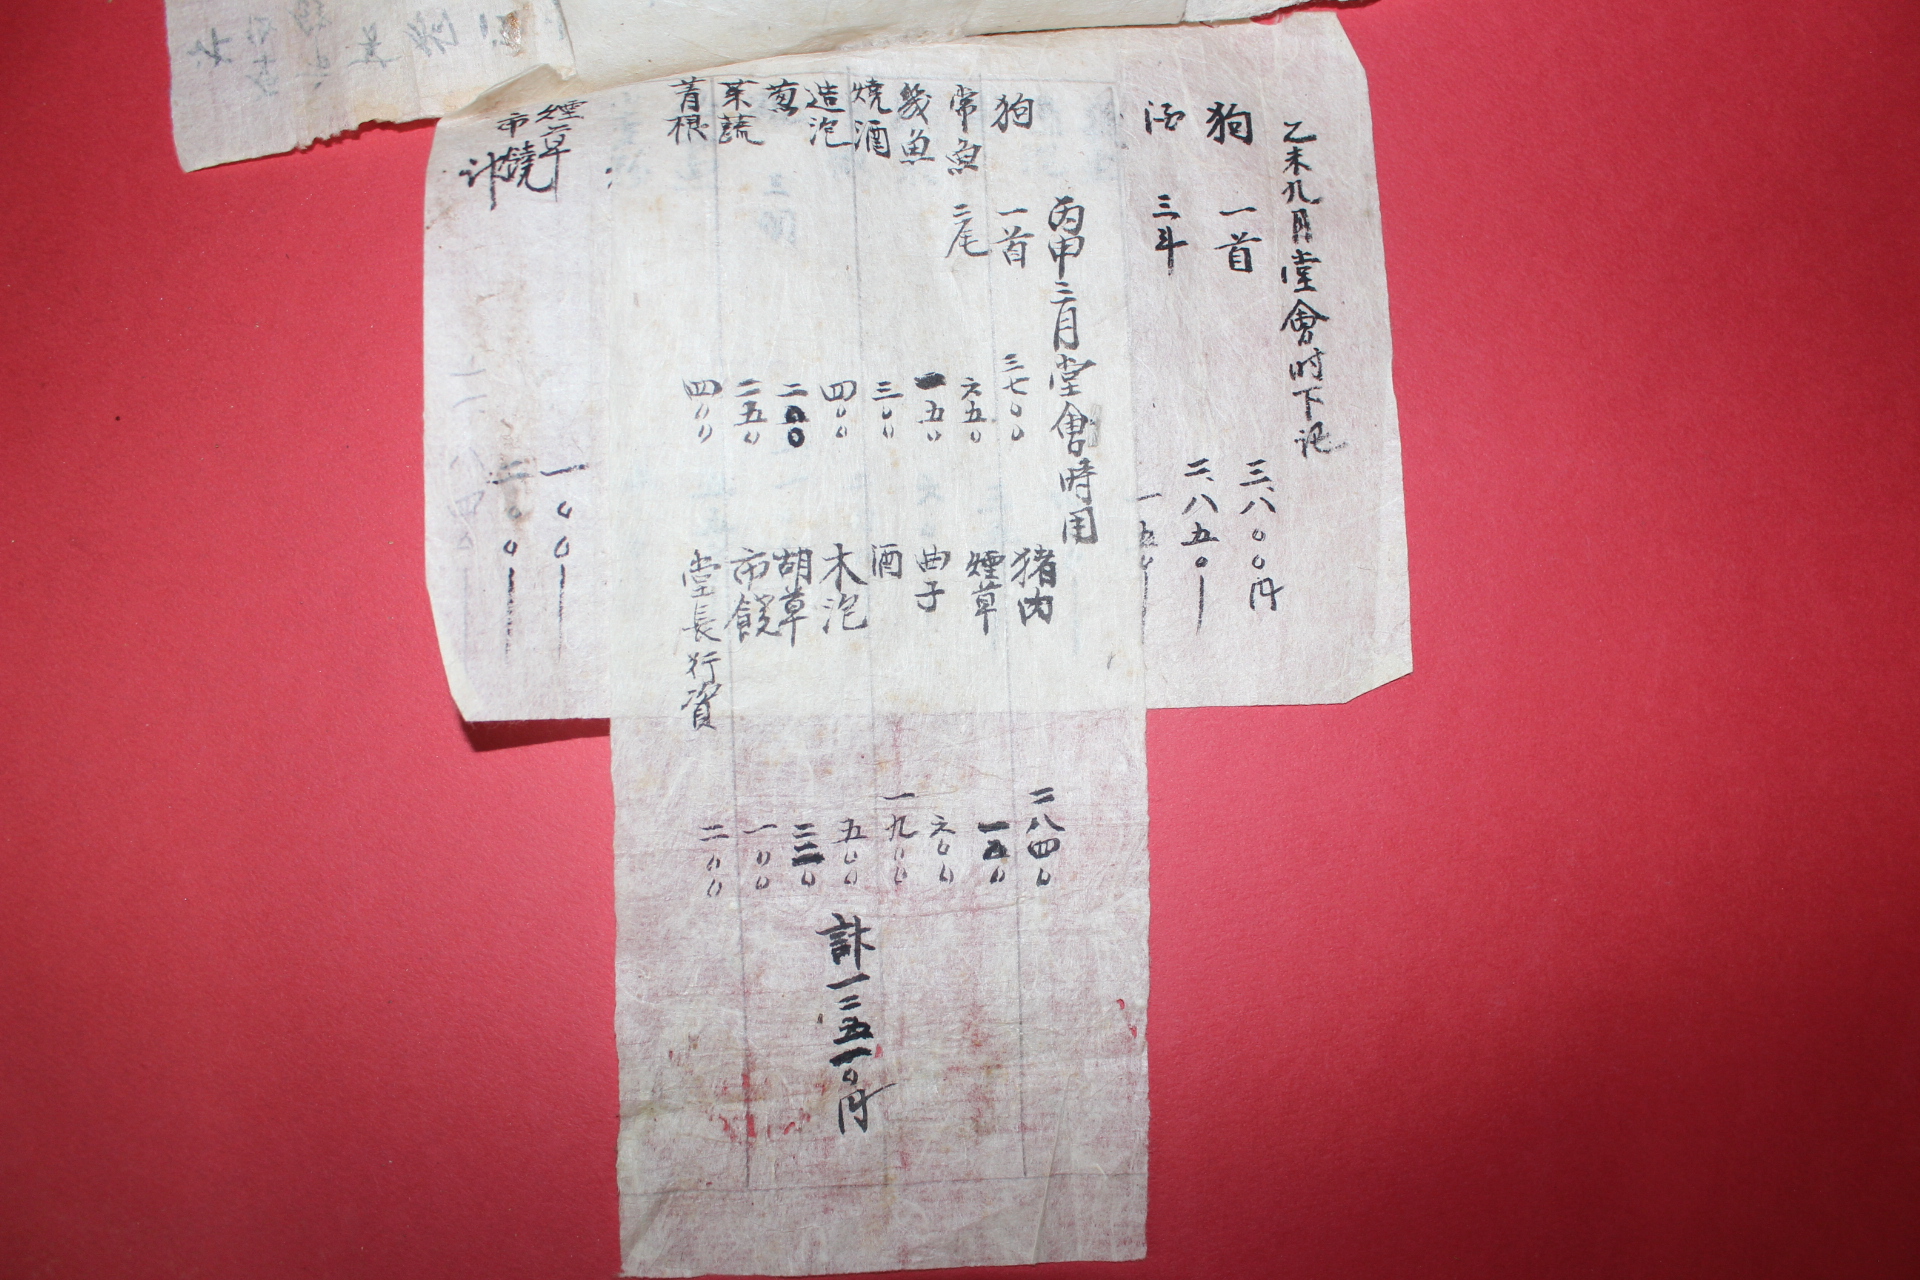 乙未九月堂會时下记
狗 一首 三、八〇〇円
酒 三斗 二、八五〇
一五〇
丙申三月堂會時用
狗 一首 三七〇〇
常魚 二尾 六五〇
幾魚 一五〇
燒酒 三〇〇
造泡 四〇〇
葱 二〇〇
菜蔬 二五〇
菁根 四〇〇
猪肉 二八四〇
煙草 一五〇
曲子 六〇〇
酒 一九〇〇
木泡 五〇〇
胡草
市饒 一〇〇
堂長行資 二〇〇
計一二五一〇円
煙草 一〇〇
市饒 二〇〇
计